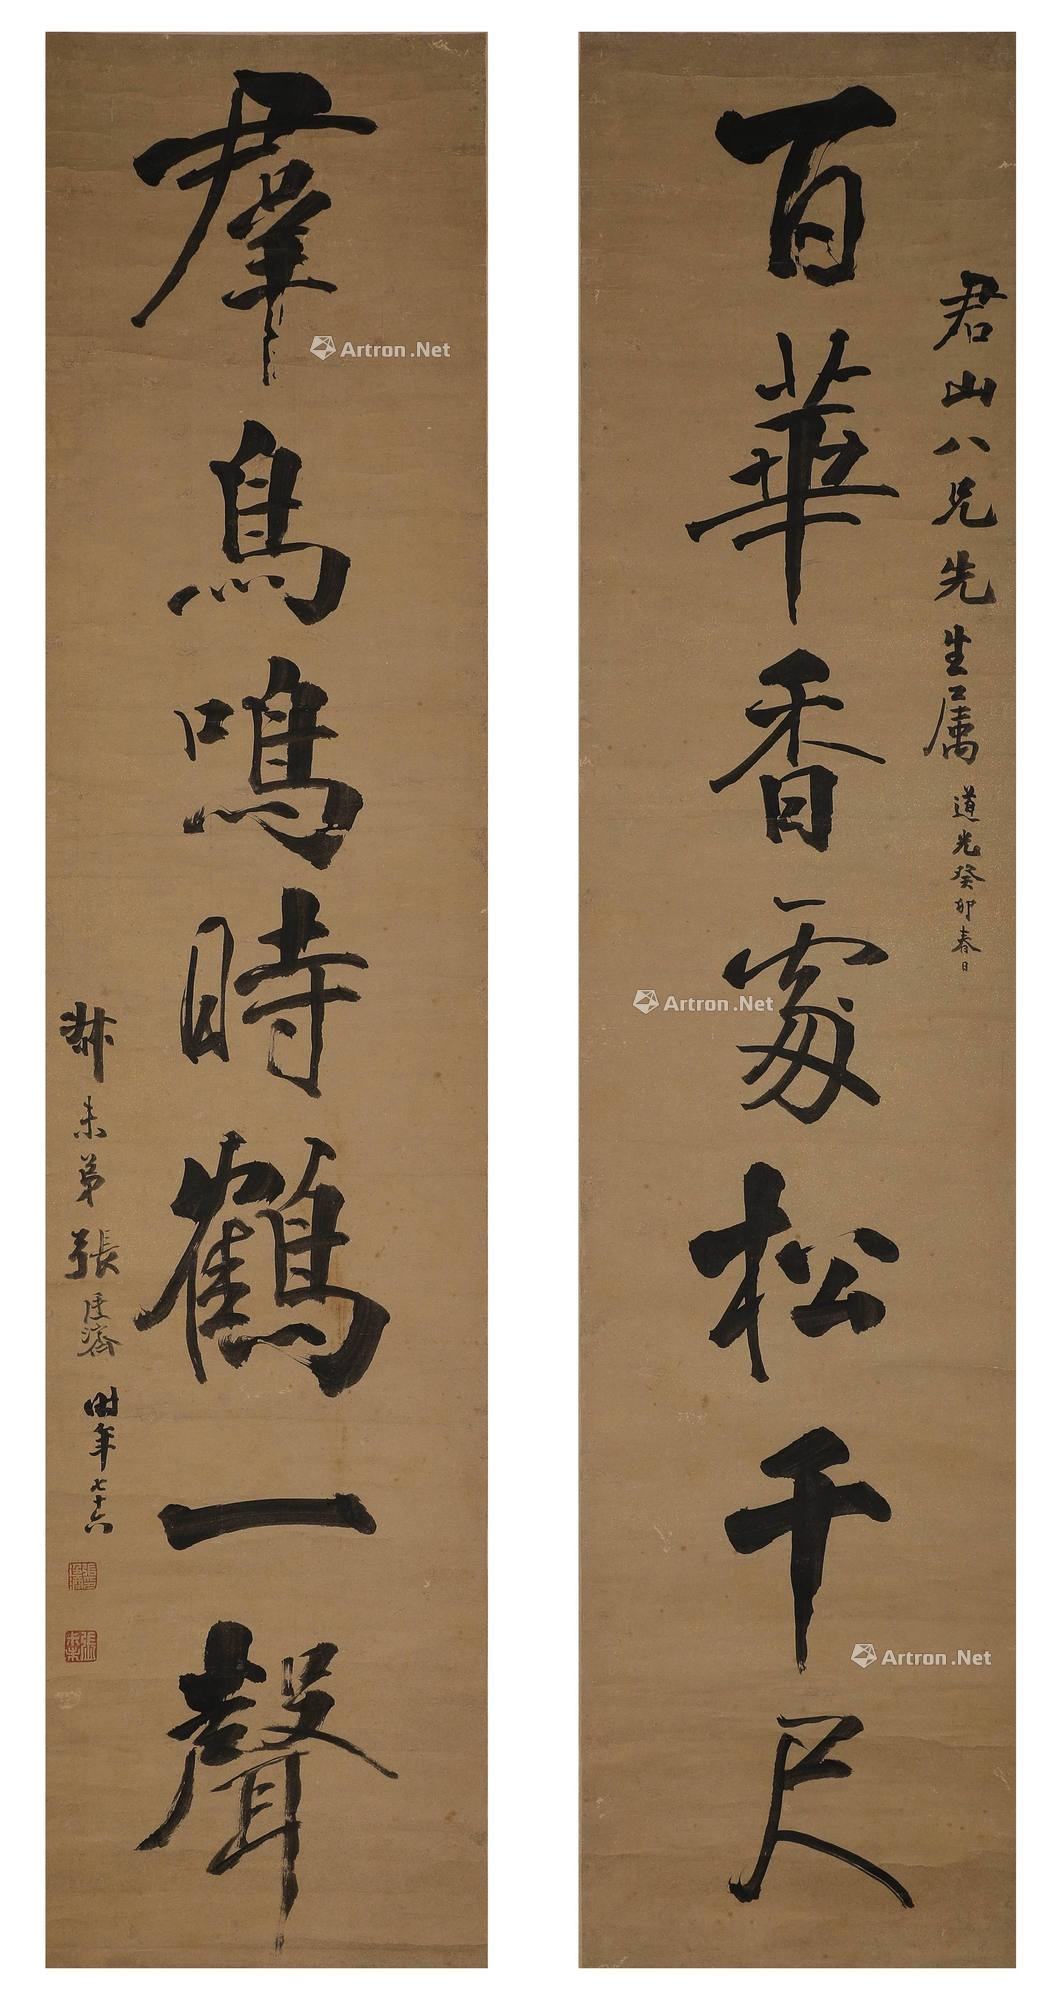 百華香處松千尺
君山八兄先生属 道光癸卯春日
羣鳥鳴時鶴一聲
叔未弟張廷濟 時年七十六
張廷濟
張叔未
Artron.Net
Artron.Net
Artron.Net